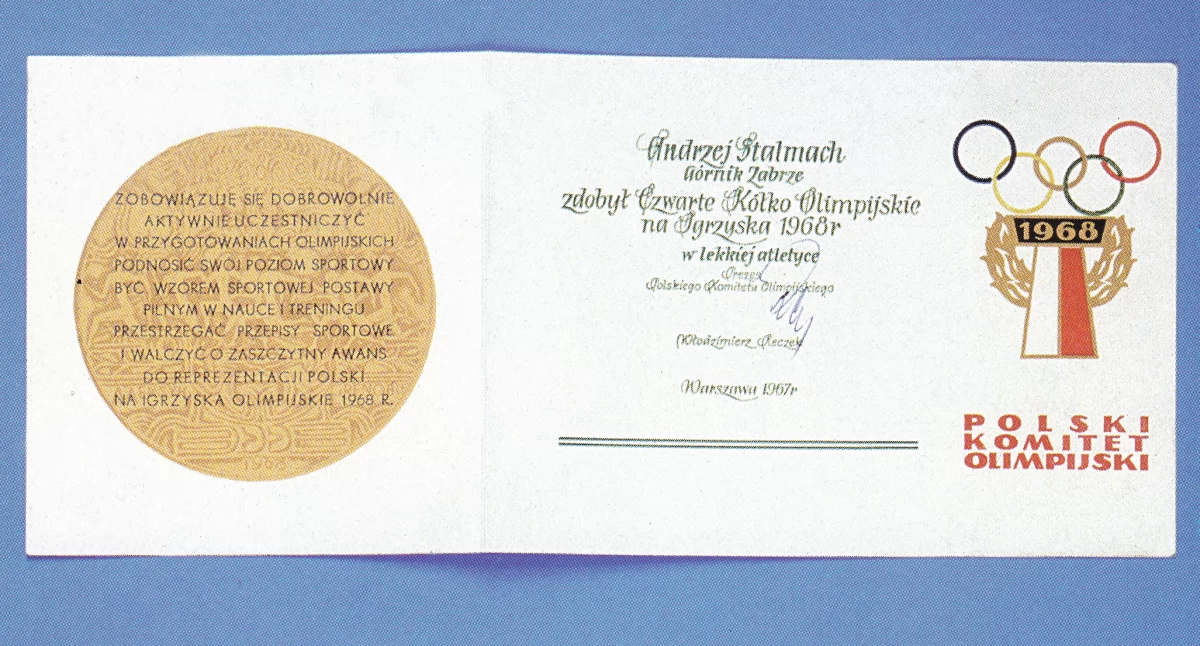 ZOBOWIĄZUJĘ SIĘ DOBROWOLNIE
AKTYWNIE UCZESTNICZYĆ
W PRZYGOTOWANIACH OLIMPIJSKICH
PODNOSIĆ SWÓJ POZIOM SPORTOWY
BYĆ WZOREM SPORTOWEJ POSTAWY
PILNYM W NAUCE I TRENINGU
PRZESTRZEGAĆ PRZEPISY SPORTOWE
I WALCZYĆ O ZASZCZYTNY AWANS
DO REPREZENTACJI POLSKI
NA IGRZYSKA OLIMPIJSKIE 1968 R.
1968
Andrzej Stalmach
Górnik Zabrze
zdobył Czwarte Kółko Olimpijskie
na Igrzyska 1968r
w lekkiej atletyce
Prezes
Polskiego Komitetu Olimpijskiego
Włodzimierz Reczek
Warszawa 1967r
1968
POLSKI
KOMITET
OLIMPIJSKI